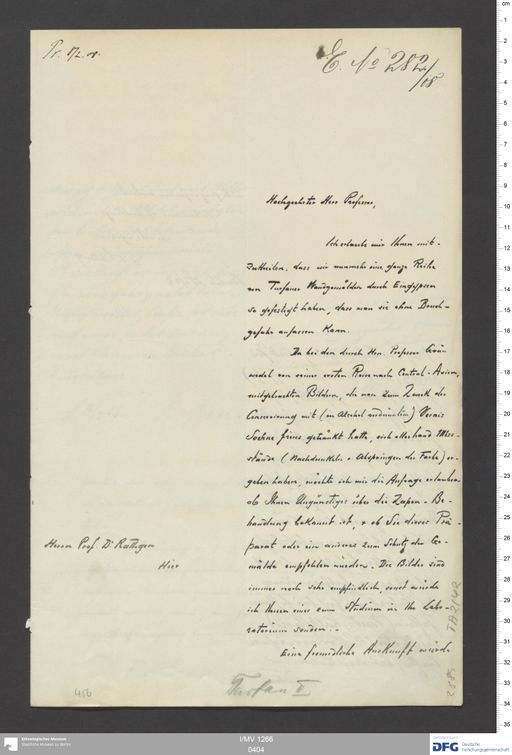 Pr. 7/2. 08.
E. No 282/08
Hochgeehrter Herr Professor,
Ich erlaube mir Ihnen mit-
zutheilen, dass wir nunmehr eine ganze Reihe
von Turfaner Wandgemälden durch Eingypsen
so gefestigt haben, dass man sie ohne Bruch-
gefahr anfassen kann.
Da bei den durch Hrn. Professor Grün
wedel von seiner ersten Reise nach Central-Asien,
mitgebrachten Bildern, die man zum Zweck der
Conservierung mit (in Alcohol verdünntem) Vernis
Soehnée frères getränkt hatte, sich allerhand Miss-
stände (Nachdunkeln u. Abspringen der Farbe) er-
geben haben, möchte ich mir die Anfrage erlauben
ob Ihnen Ungünstiges über die Zapon-Be-
handlung bekannt ist, u. ob Sie dieses Prä-
parat oder ein anderes zum Schutz der Ge-
mälde empfehlen würden. Die Bilder sind
immer noch sehr empfindlich, sonst würde
ich Ihnen eines zum Studium in Ihr Labo-
ratorium senden.-
Eine freundliche Auskunft würde
Herrn Prof. Dr Rathgen
Hier
Turfan II
456
TA 2142
I/MV 1266
0404
Ethnologisches Museum
Staatliche Museen zu Berlin
DFG Deutsche
Forschungsgemeinschaft